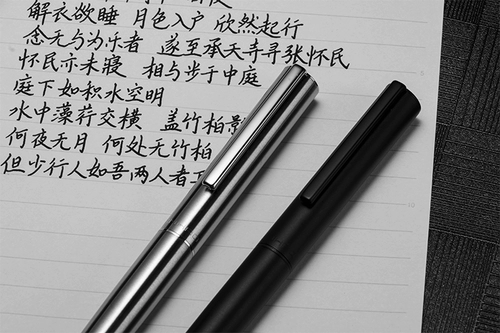 解衣欲睡 月色入户 欣然起行
念无与为乐者 遂至承天寺寻张怀民
怀民亦未寝 相与步于中庭
庭下如积水空明
水中藻荇交横 盖竹柏影
何夜无月 何处无竹柏
但少行人如吾两人者